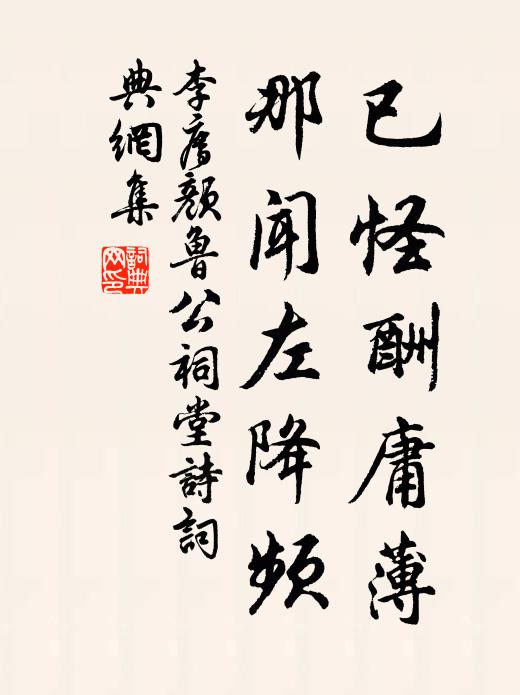 已怪酬庸薄
那闻左降频
李廌颜鲁公祠堂詩詞
典網集
詞典网印